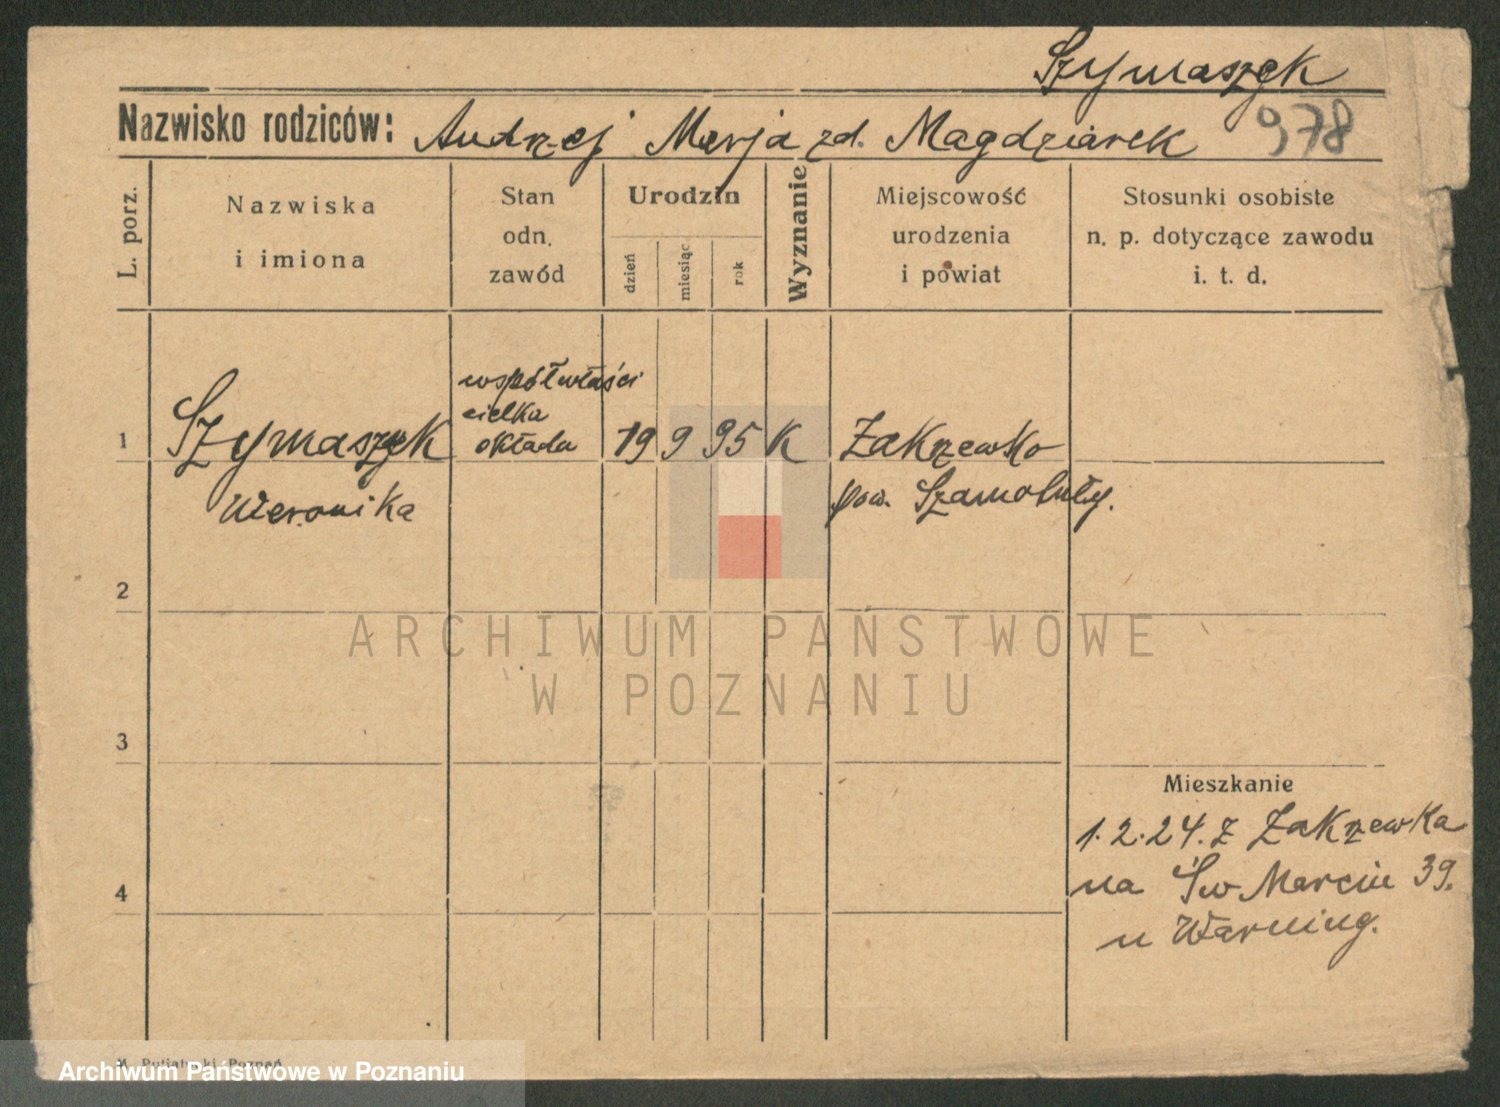 Szymaszek
Nazwisko rodziców: Andrzej Marja zd. Magdziarek 978
L. porz.
Nazwiska
i imiona
Stan
odn.
zawód
Urodzin
dzień
miesiąc
rok
Wyznanie
Miejscowość
urodzenia
i powiat
Stosunki osobiste
n. p. dotyczące zawodu
i. t. d.
współwłaści
cielka
1 Szymaszek składu 19 9 95 K Zakrzewko
Weronika pow. Szamotuły.
2
ARCHIWUM PAŃSTWOWE
W POZNANIU
3
Mieszkanie
1.2.24. z Zakrzewka
4 na Św Marcin 39.
u Warning.
Poznań
Archiwum Państwowe w Poznaniu